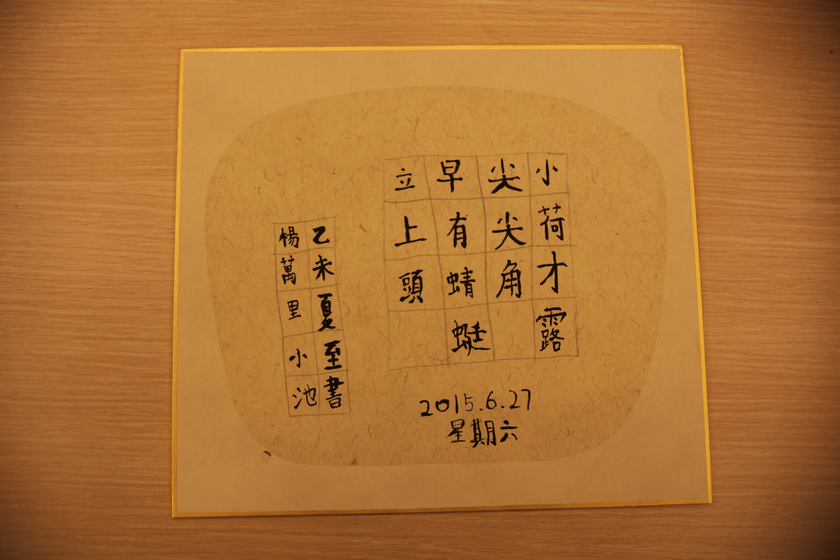 小荷才露
尖尖角
早有蜻蜓
立上頭
乙未夏至書
楊萬里小池
2015.6.27
星期六